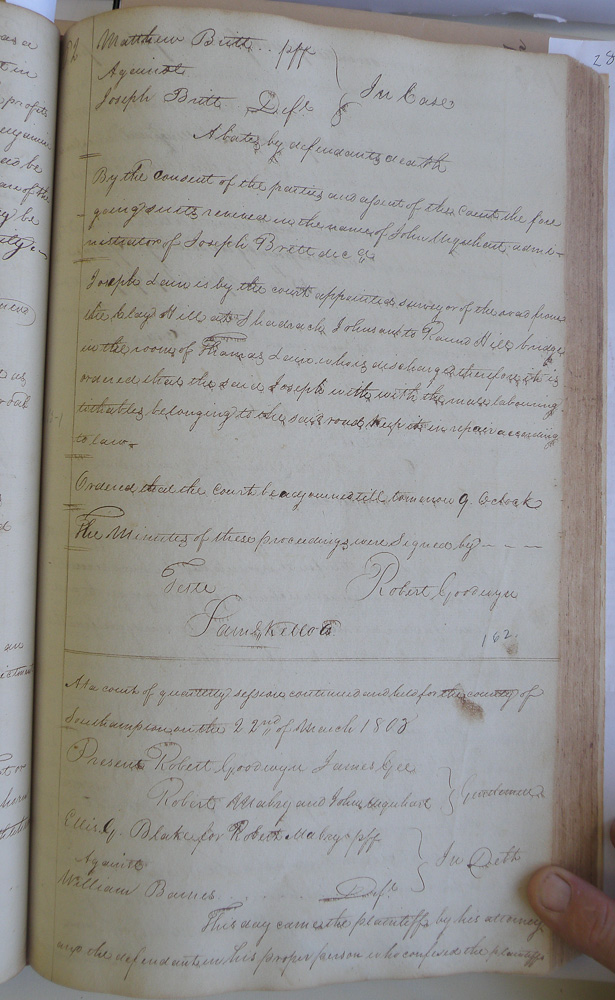 Matthew Britt .. plff
Against
Joseph Britt Deft
In Case
Abates by defendants death
By the consent of the parties and assent of the Court the fore
going suit revived in the name of John Urquhart admi-
nistrator of Joseph Britt dec
Joseph Lain is by the court appointed surveyor of the road from
the Clay Hill at Shadrack Johnsons to Round Hill bridge
in the room of Thomas Lain who is discharged therefrom it is
ordered that the said Joseph with the male labouring
tithables belonging to the said road keep it in repair according
to law
Ordered that the court be adjourned till tomorrow 9. Oclock
The Minutes of these proceedings were Signed by - - -
Teste
Robert Goodwyn
Saml Kello
162
At a court of quarterly session continued and held for the county of
Southampton on the 22nd of March 1803
Present Robert Goodwyn James Gee
Robert Mabry and John Urquhart
Gentlemen
Ellis G. Blake for Robert Mabry plff
Against
In Debt
William Barnes Deft
This day came the plaintiff by his attorney
and the defendant in his proper person who confessed the plaintiffs